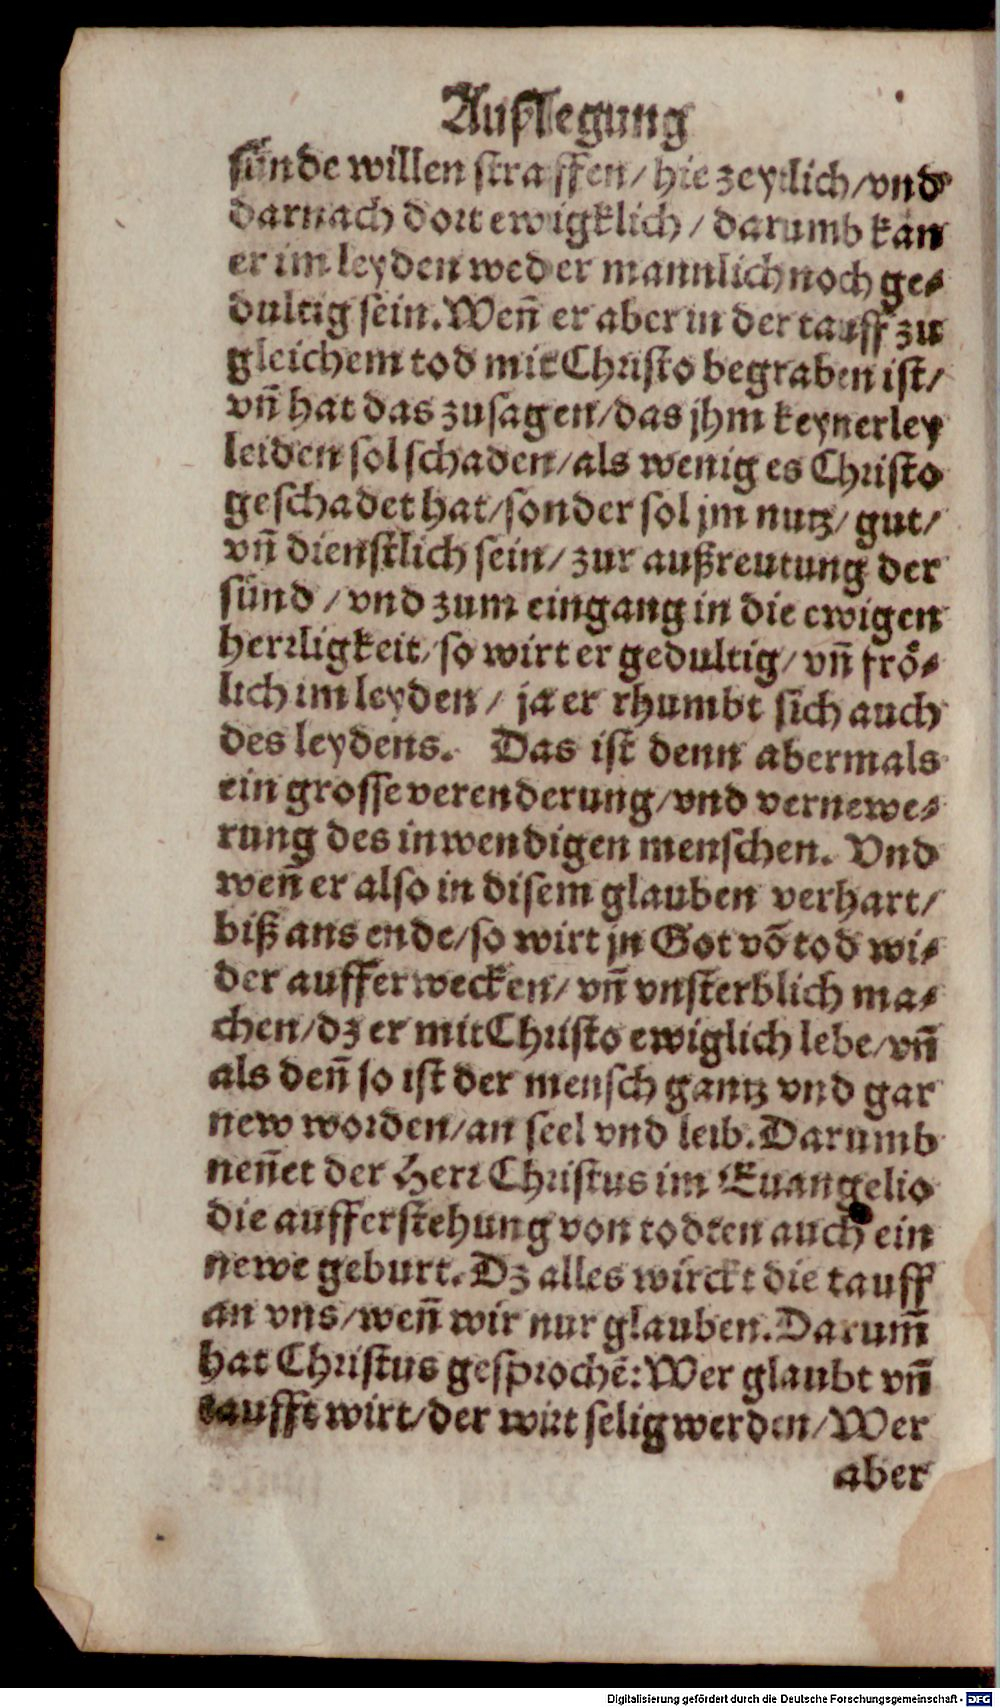 Außlegung
sünde willen straffen/ hie zeytlich/ vnd
darnach dort ewigklich/ darumb kan
er im leyden weder mannlich noch ge-
dultig sein. Weñ er aber in der tauff zu
gleichem tod mit Christo begraben ist/
vñ hat das zusagen/ das jhm keynerley
leiden sol schaden/ als wenig es Christo
geschadet hat/ sonder sol jm nutz/ gut/
vñ dienstlich sein/ zur außreutung der
sünd/ vnd zum eingang in die ewigen
herrligkeit/ so wirt er gedultig/ vñ frö-
lich im leyden/ ja er rhumbt sich auch
des leydens. Das ist denn abermals
ein grosse verenderung/ vnd vernewe-
rung des inwendigen menschen. Vnd
weñ er also in disem glauben verhart/
biß ans ende/ so wirt jn Got võ tod wi-
der aufferwecken/ vñ vnsterblich ma-
chen/ dz er mit Christo ewiglich lebe/ vñ
als deñ so ist der mensch gantz vnd gar
new worden/ an seel vnd leib. Darumb
neñet der Herr Christus im Euangelio
die aufferstehung von todten auch ein
newe geburt. Dz alles wirckt die tauff
an vns/ weñ wir nur glauben. Darum̃
hat Christus gesprochẽ: Wer glaubt vñ
taufft wirt/ der wirt selig werden/ Wer
aber
Digitalisierung gefördert durch die Deutsche Forschungsgemeinschaft - DFG